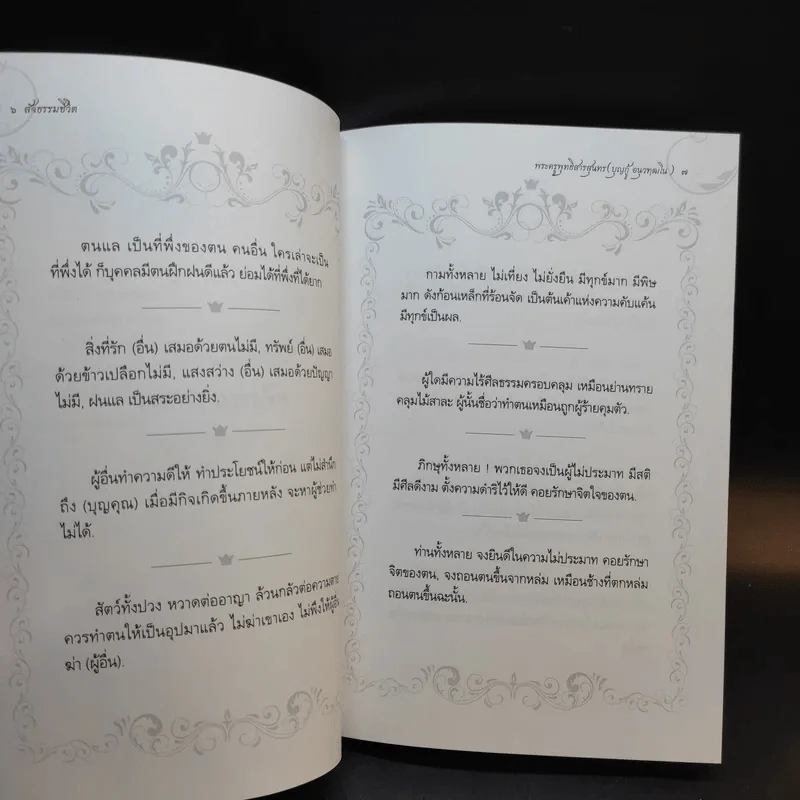 ๖ สัจธรรมชีวิต
ตนแล เป็นที่พึ่งของตน คนอื่น ใครเล่าจะเป็น
ที่พึ่งได้ ก็บุคคลมีตนฝึกฝนดีแล้ว ย่อมได้ที่พึ่งที่ได้ยาก
สิ่งที่รัก (อื่น) เสมอด้วยตนไม่มี, ทรัพย์ (อื่น) เสมอ
ด้วยข้าวเปลือกไม่มี, แสงสว่าง (อื่น) เสมอด้วยปัญญา
ไม่มี, ฝนแล เป็นสระอย่างยิ่ง.
ผู้อื่นทำความดีให้ ทำประโยชน์ให้ก่อน แต่ไม่สำนึก
ถึง (บุญคุณ) เมื่อมีกิจเกิดขึ้นภายหลัง จะหาผู้ช่วยทำ
ไม่ได้.
สัตว์ทั้งปวง หวาดต่ออาญา ล้วนกลัวต่อความตาย
ควรทำตนให้เป็นอุปมาแล้ว ไม่ฆ่าเขาเอง ไม่พึงให้ผู้อื่น
ฆ่า (ผู้อื่น).
พระครูพุทธิสารสุนทร (บุญกู้ อนุวฑฺฒโน) ๗
กามทั้งหลาย ไม่เที่ยง ไม่ยั่งยืน มีทุกข์มาก มีพิษ
มาก ดังก้อนเหล็กที่ร้อนจัด เป็นต้นเค้าแห่งความคับแค้น
มีทุกข์เป็นผล.
ผู้ใดมีความไร้ศีลธรรมครอบคลุม เหมือนย่านทราย
คลุมไม้สาละ ผู้นั้นชื่อว่าทำตนเหมือนถูกผู้ร้ายคุมตัว.
ภิกษุทั้งหลาย ! พวกเธอจงเป็นผู้ไม่ประมาท มีสติ
มีศีลดีงาม ตั้งความดำริไว้ให้ดี คอยรักษาจิตใจของตน.
ท่านทั้งหลาย จงยินดีในความไม่ประมาท คอยรักษา
จิตของตน, จงถอนตนขึ้นจากหล่ม เหมือนช้างที่ตกหล่ม
ถอนตนขึ้นฉะนั้น.